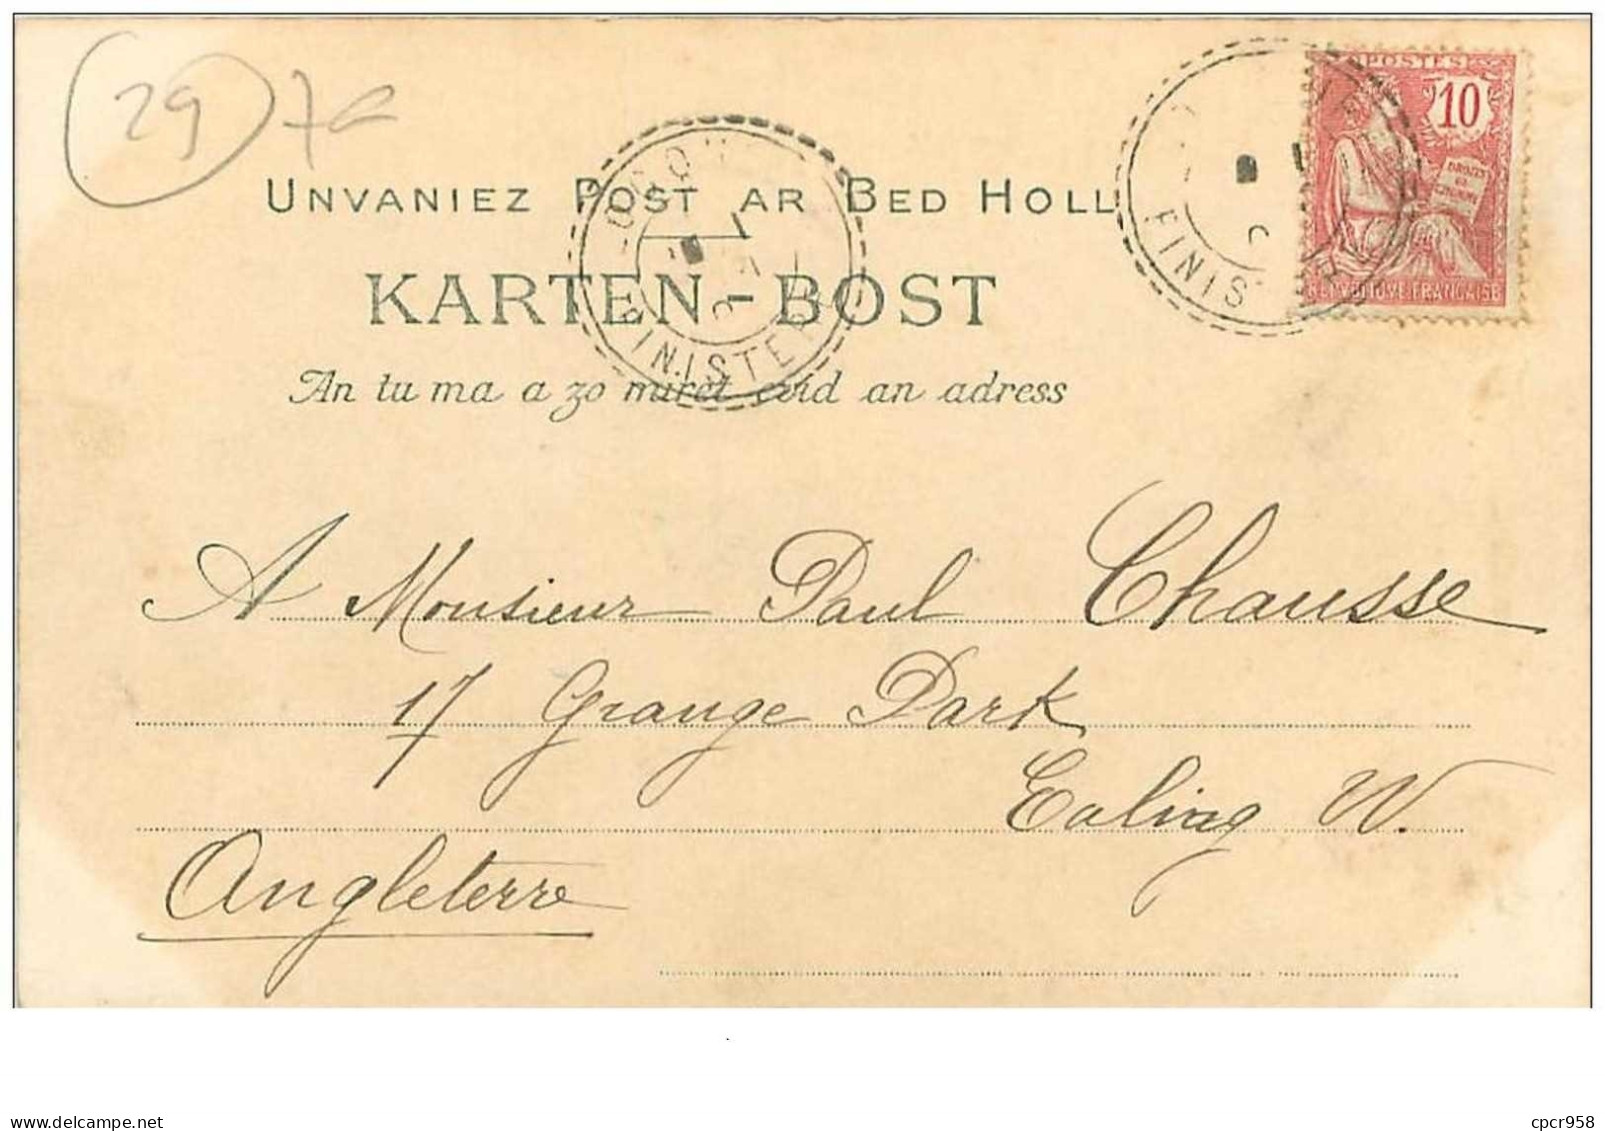 29 7e
POSTES
10
UNVANIEZ POST AR BED HOLL
FINIS
DROITS DE L'HOMME
REPUBLIQUE FRANCAISE
KARTEN-BOST
FINISTERE
An tu ma a zo miret evid an adress
A Monsieur Paul Chausse
17 Grange Park
Ealing W.
Angleterre
delcampe.net
cpcr958